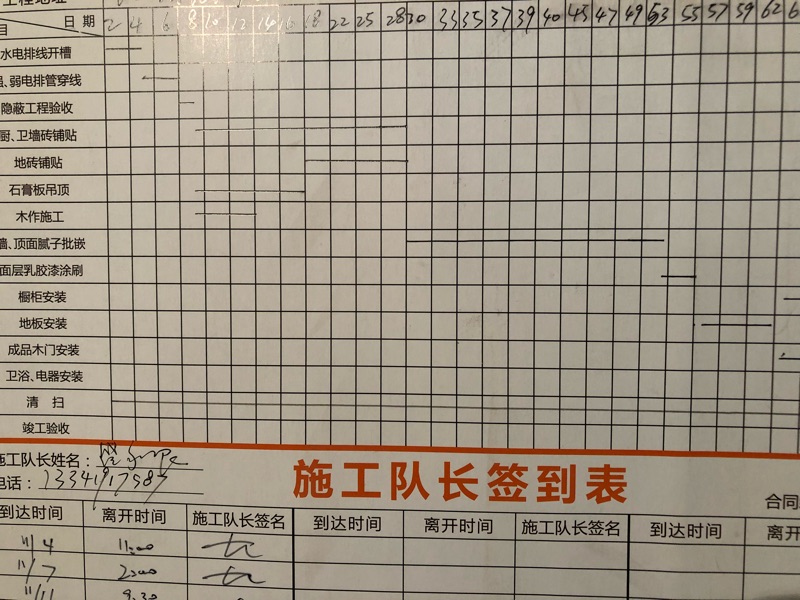 工程地址
日 期 2 4 6 8 10 12 14 16 18 22 25 28 30 33 35 37 39 40 45 47 49 53 55 57 59 62
目
水电排线开槽
强、弱电排管穿线
隐蔽工程验收
厨、卫墙砖铺贴
地砖铺贴
石膏板吊顶
木作施工
墙、顶面腻子批嵌
面层乳胶漆涂刷
橱柜安装
地板安装
成品木门安装
卫浴、电器安装
清 扫
竣工验收
施工队长姓名：
电话：13341917587
施工队长签到表
合同
到达时间 离开时间 施工队长签名 到达时间 离开时间 施工队长签名 到达时间 离开
11/4 11:00
11/7 2:00
11/11 9:30